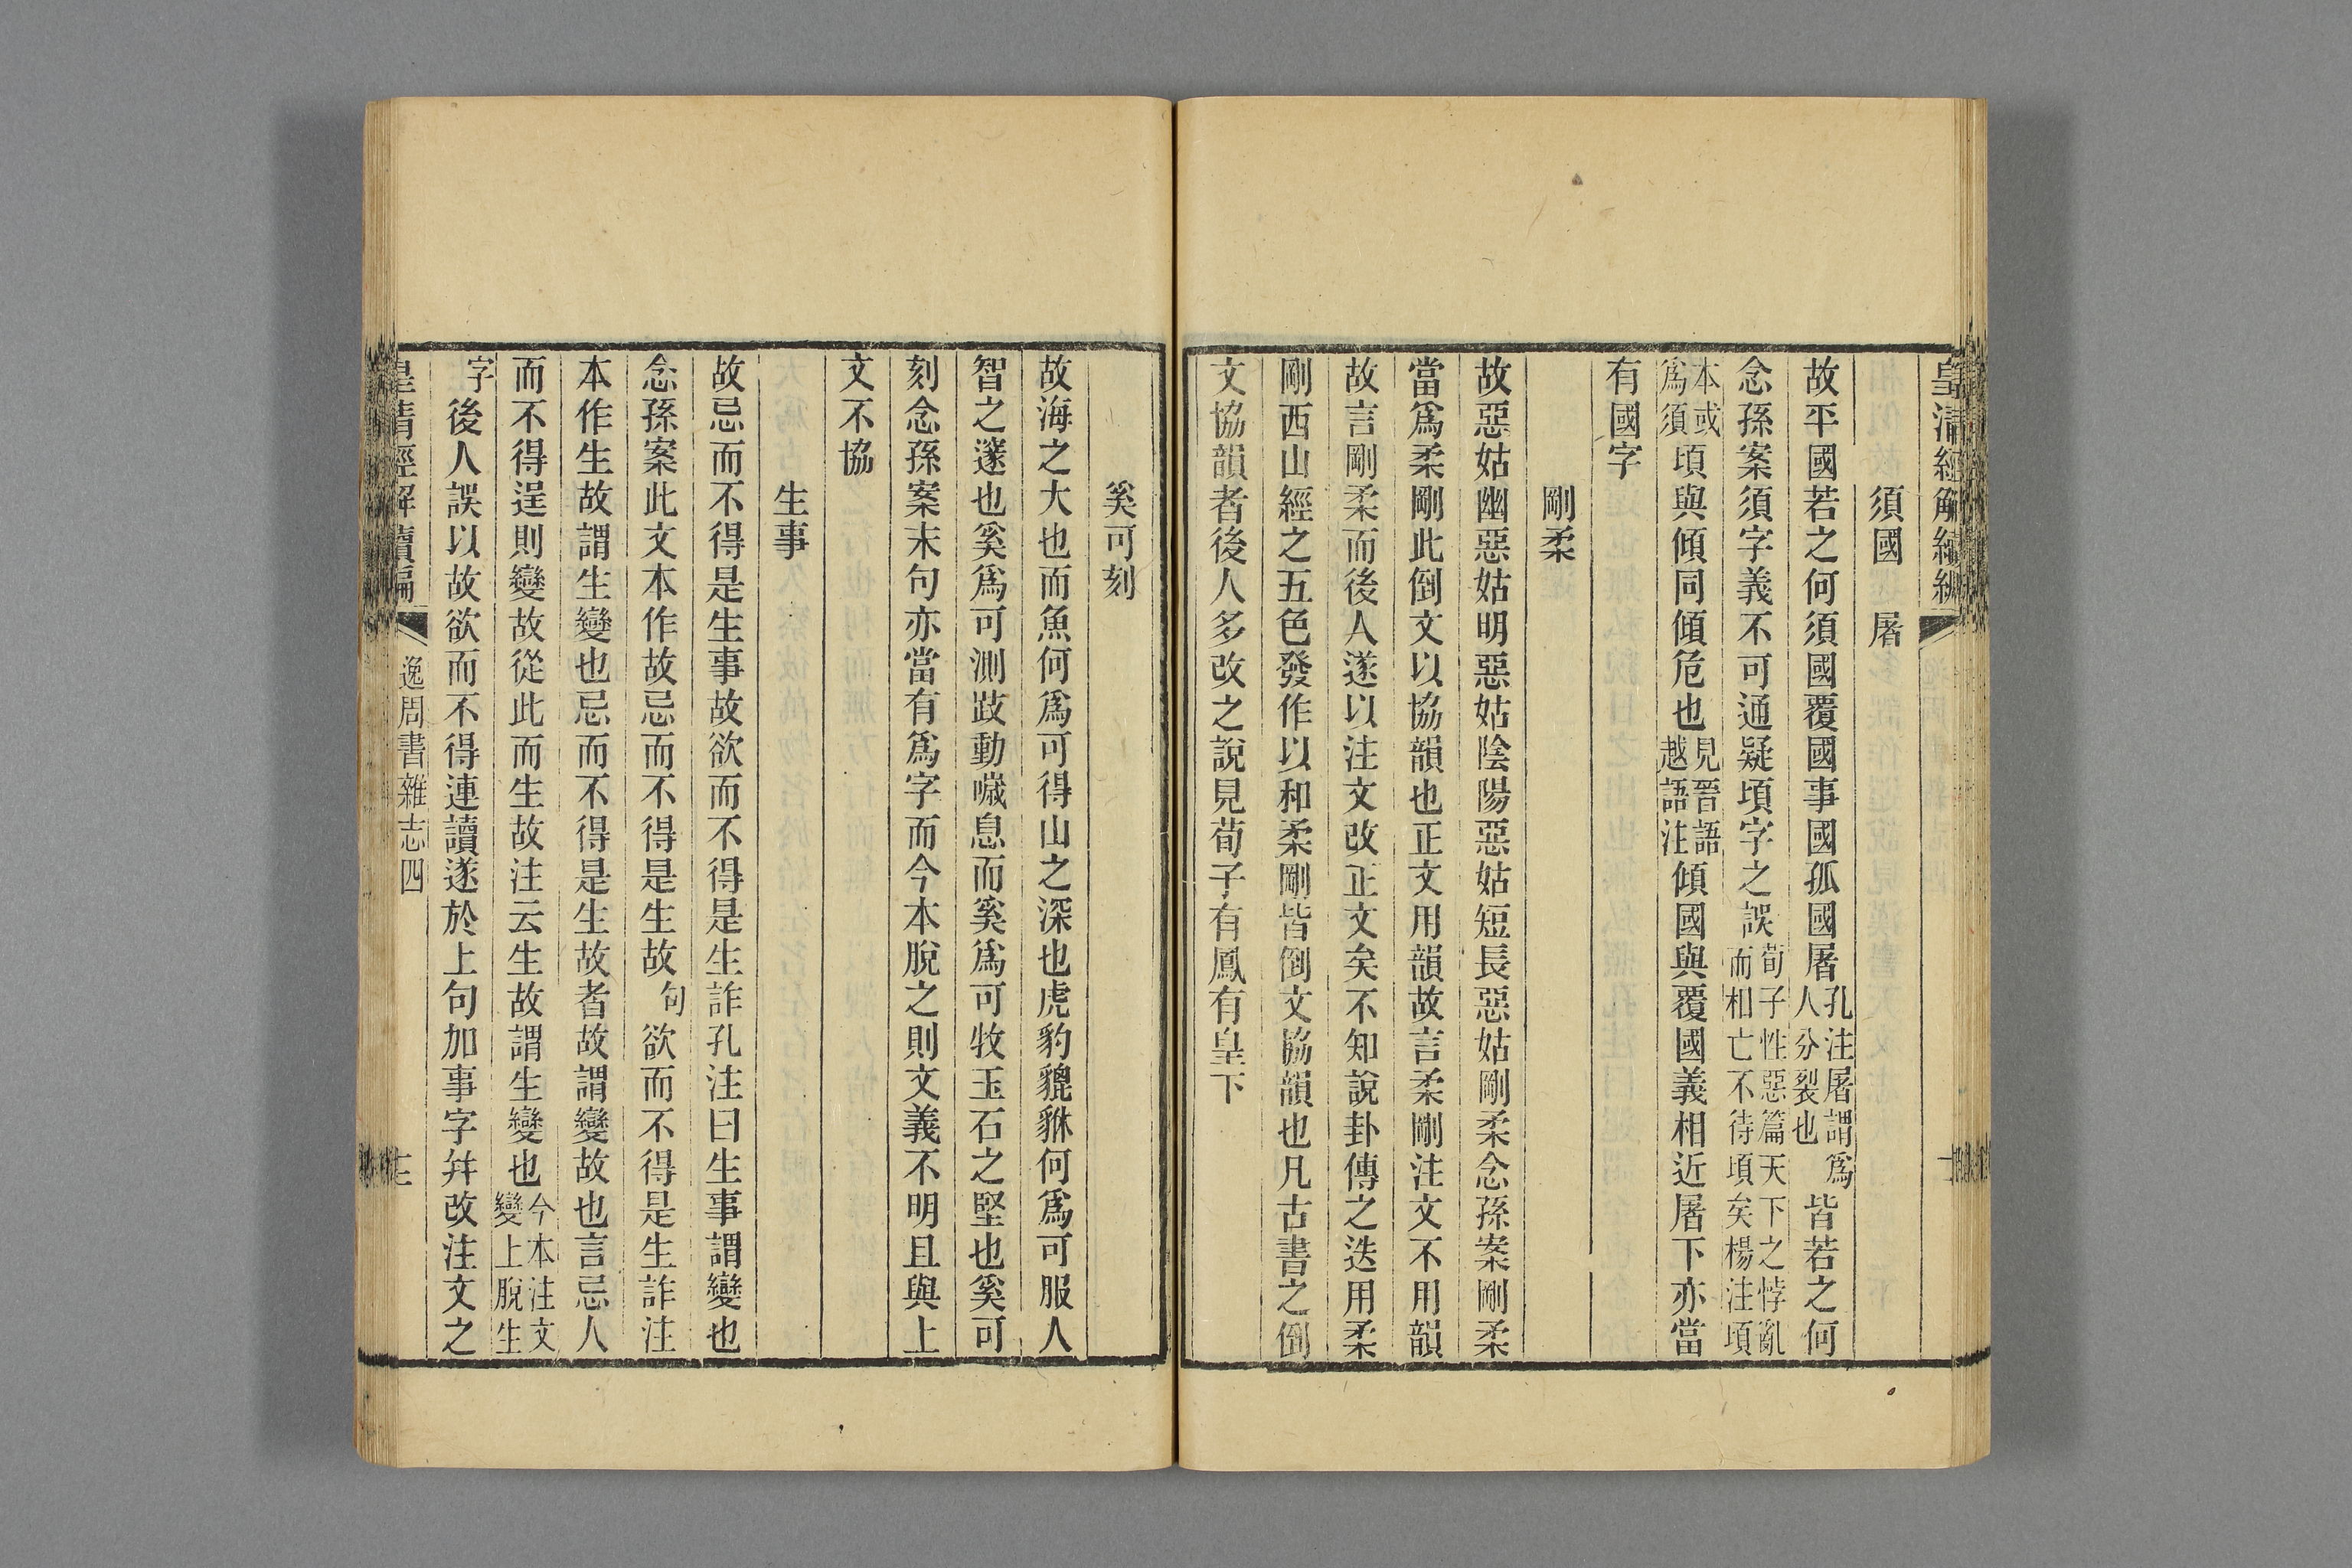 皇清經解續編
須國　屠
故平國若之何須國覆國事國孤國屠孔注屠謂爲人分裂也皆若之何
念孫案須字義不可通疑頃字之誤荀子性惡篇天下之悖亂而相亡不待頃矣楊注頃
本或爲須頃與傾同傾危也見晉語越語注傾國與覆國義相近屠下亦當
有國字
剛柔
故惡姑幽惡姑明惡姑陰陽惡姑短長惡姑剛柔念孫案剛柔
當爲柔剛此倒文以協韻也正文用韻故言柔剛注文不用韻
故言剛柔而後人遂以注文改正文矣不知說卦傳之迭用柔
剛西山經之五色發作以和柔剛皆倒文協韻也凡古書之倒
文協韻者後人多改之說見荀子有鳳有皇下
奚可刻
故海之大也而魚何爲可得山之深也虎豹貔貅何爲可服人
智之邃也奚爲可測跂動噦息而奚爲可牧玉石之堅也奚可
刻念孫案末句亦當有爲字而今本脫之則文義不明且與上
文不協
生事
故忌而不得是生事故欲而不得是生詐孔注曰生事謂變也
念孫案此文本作故忌而不得是生故句欲而不得是生詐注
本作生故謂生變也忌而不得是生故者故謂變故也言忌人
而不得逞則變故從此而生故注云生故謂生變也今本注文變上脫生
字後人誤以故欲而不得連讀遂於上句加事字幷改注文之
皇清經解續編　逸周書雜志四